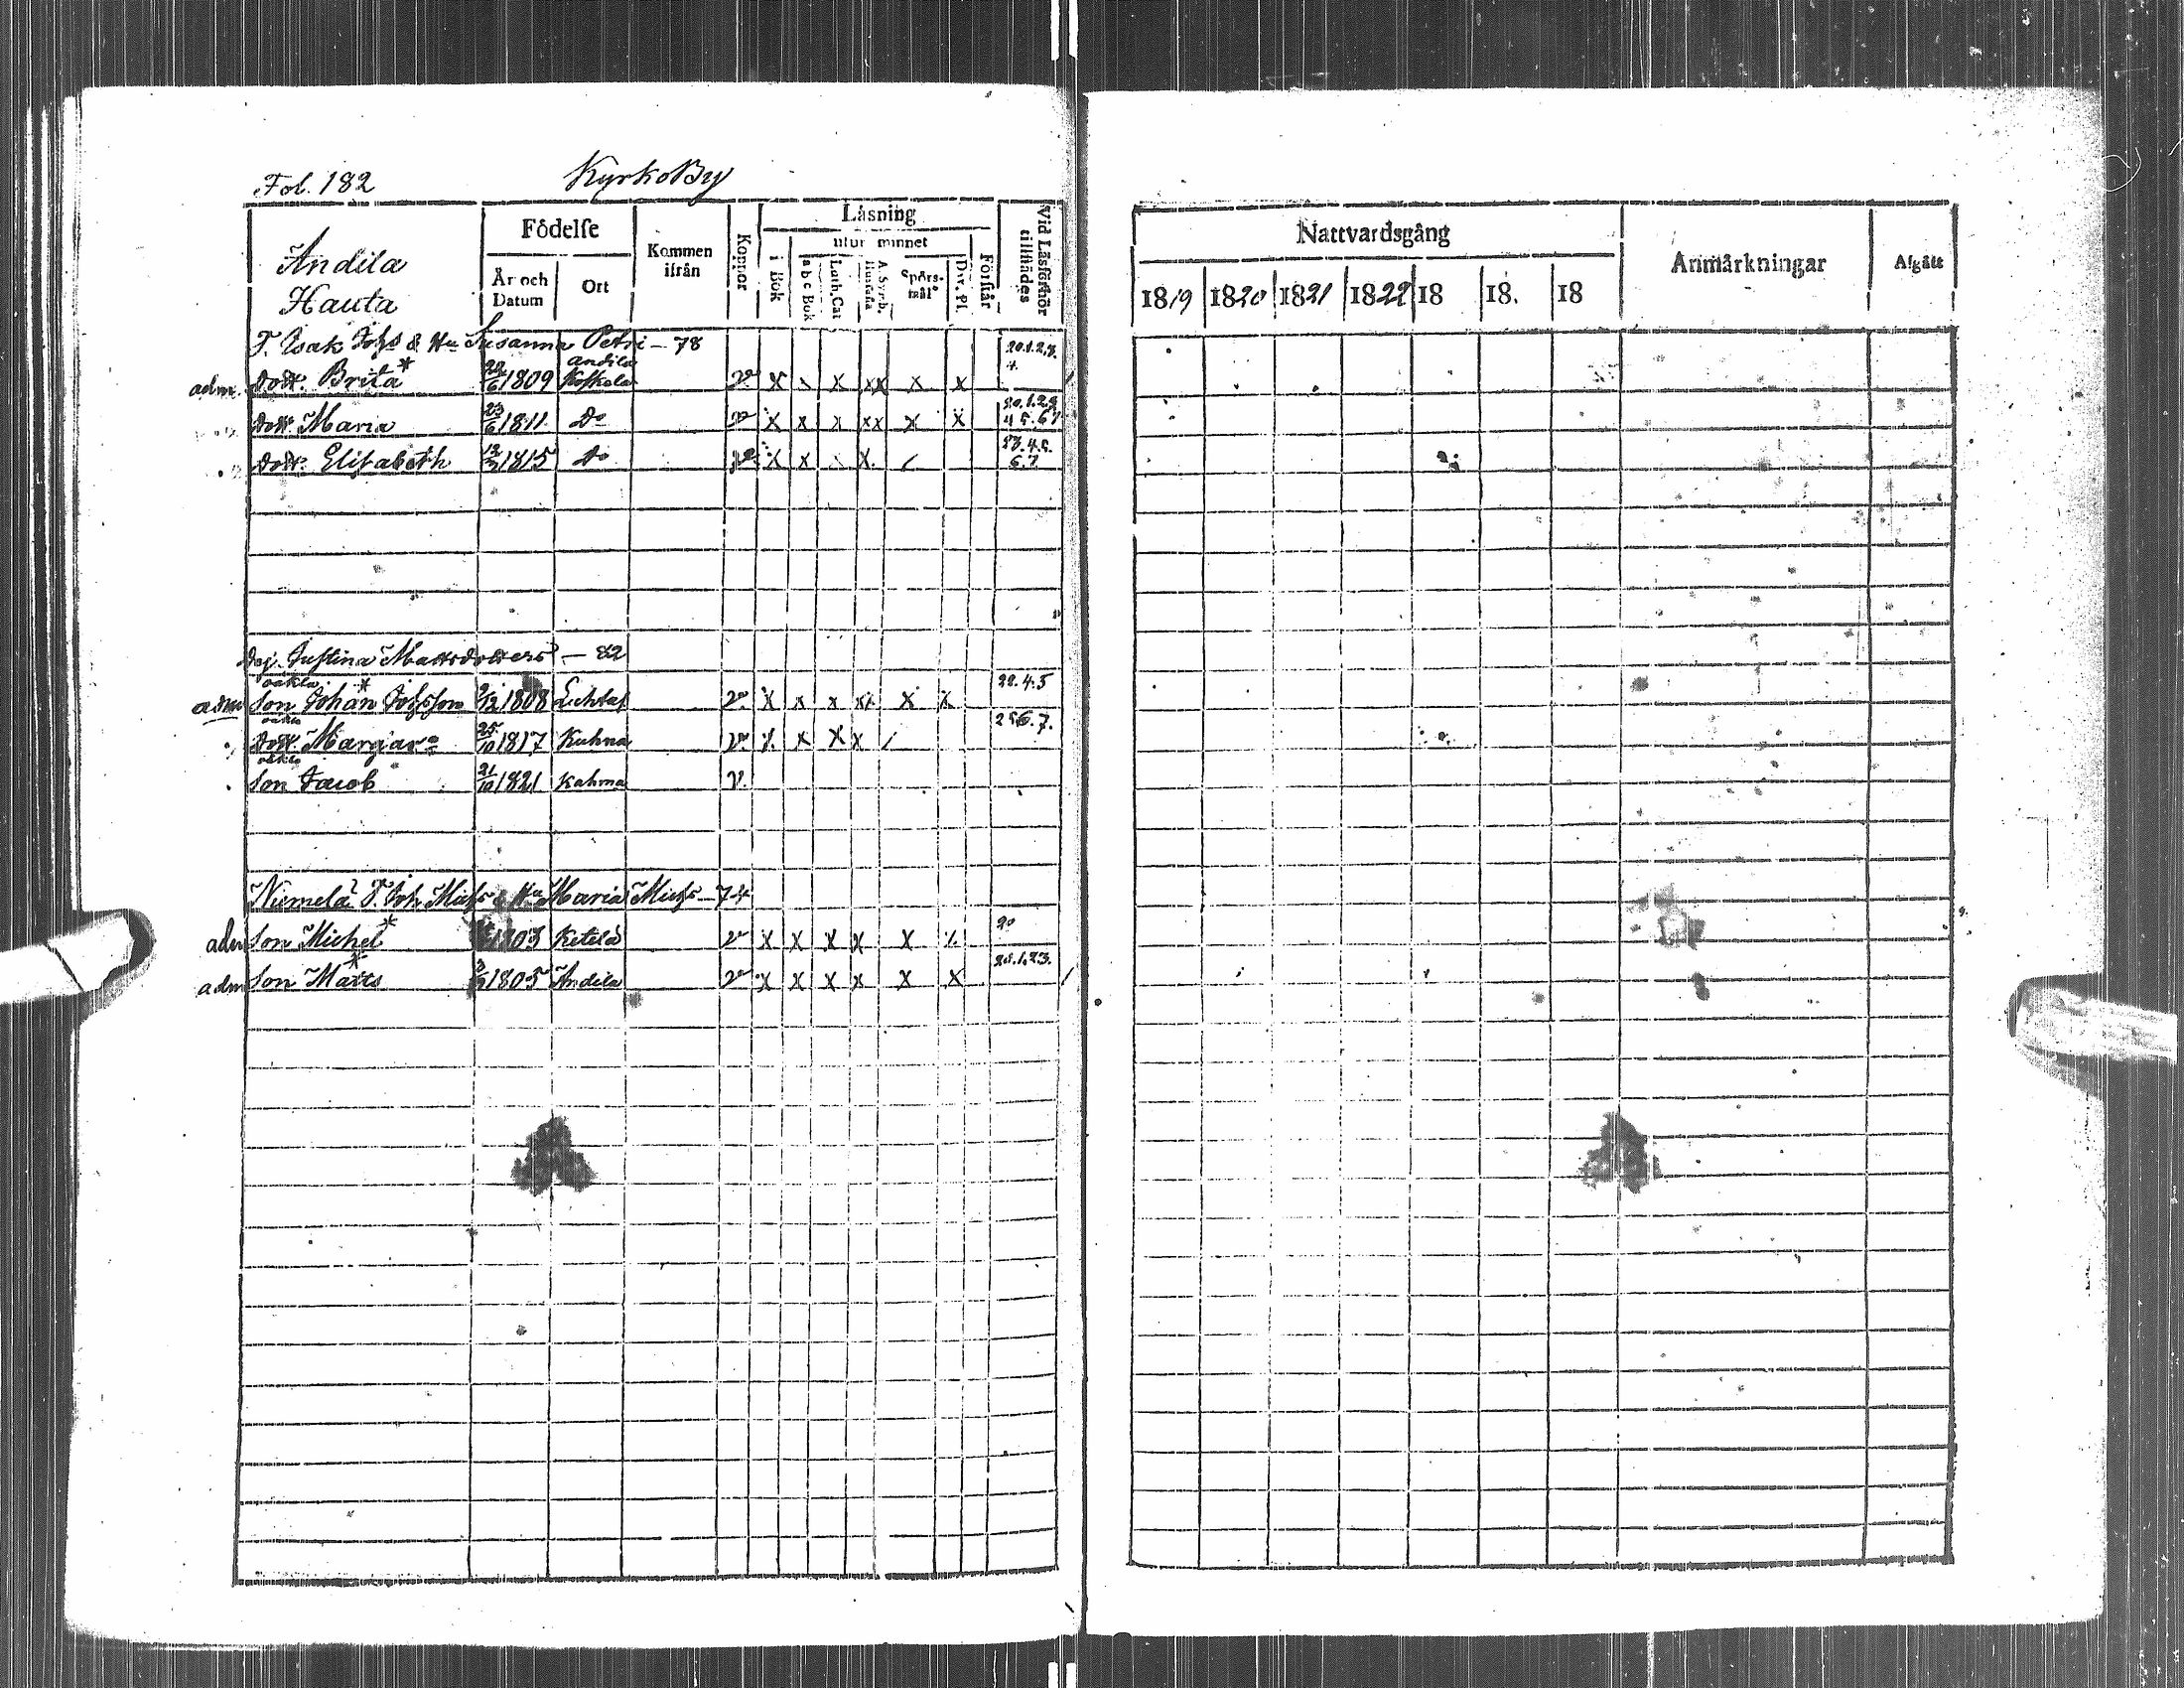 Fol. 182 KyrkoBy
Andila
Hauta
Födelse
År och Datum
Ort
Kommen ifrån
Koppor
Läsning
i Bok
utur minnet
a b c Bok
Luth. Cat
A. Symb. Hustafla
Spörsmål
Dav. Ps.
Förstår
Vid Läsförhör tillstädes
T. Isak Johs & Hu Susanna Petri – 78
adm. dott. Brita* 22/6 1809 Andila Koskela x x x xx x x 20.1.2.3. 4.
dott. Maria 23/6 1811 Do x x x xx x x 20.1.2.3 4 5. 6 7
dott. Elisabeth 12/3 1815 Do x x x. / 23.4.5. 6.7.
Justina Mattsdotters – 82
adm oäkta son Johan* Johsson 9/12 1808 x x x x x x 22.4.5
oäkta dott. Margar: 25/10 1817 Kuhna x x x x / 2 5 6.7.
oäkta son Jacob 21/10 1821 Kahma v.
Niemelä T. Joh. Michs & Hu Maria Michs – 74
adm son Michel* 1803 Ketelä x x x x x x 20
adm son Matts* 1805 Andila x x x x x x 20.1.23.
Nattvardsgång
Anmärkningar
Afgått
1819 1820 1821 1822 18 18. 18